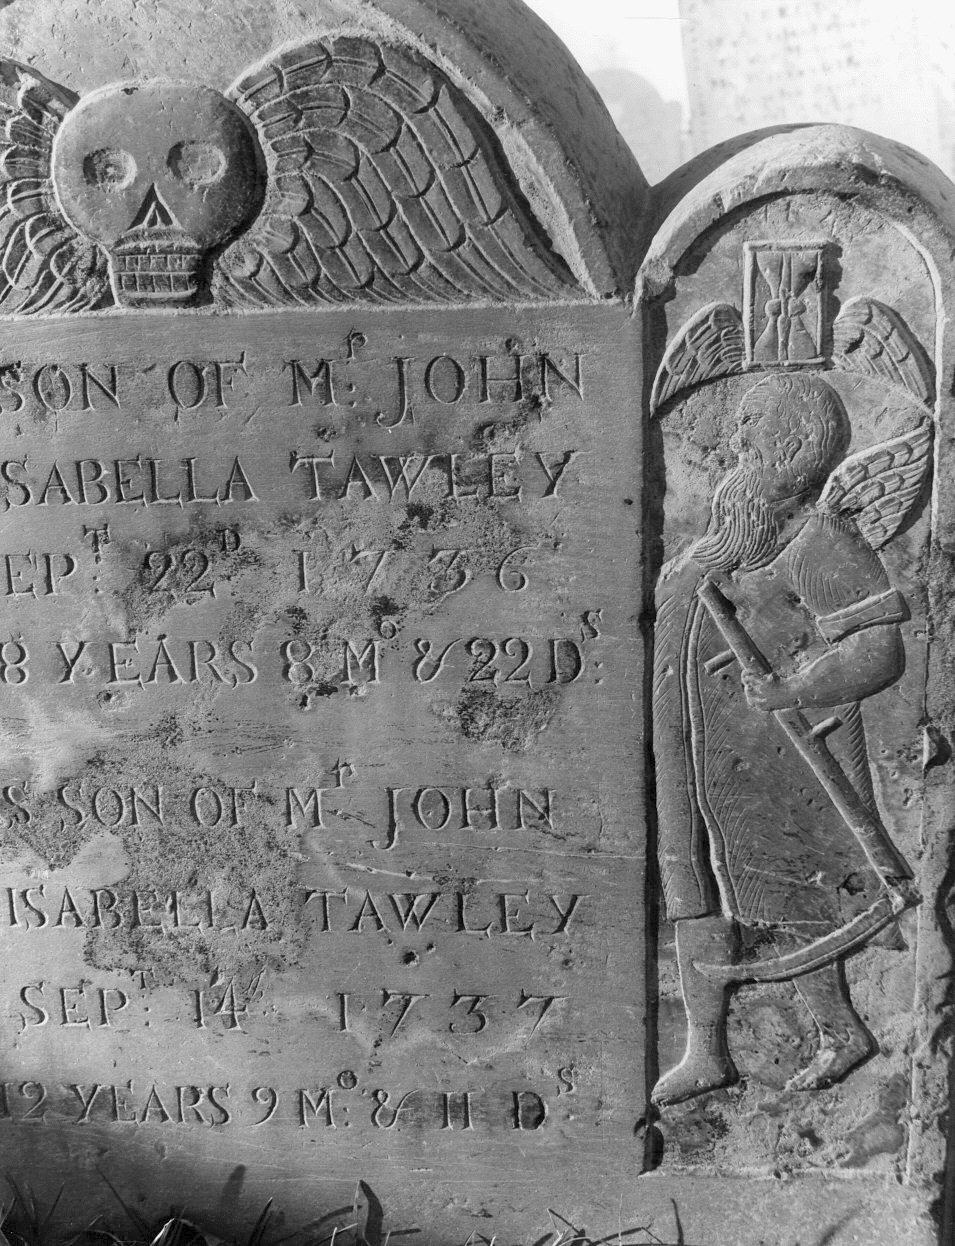 SON OF Mr. JOHN
ISABELLA TAWLEY
SEPT. 22D 1736
8 YEARS 8 Mo. & 22 Ds.
SON OF Mr JOHN
ISABELLA TAWLEY
SEPT. 14. 1737
12 YEARS 9 Mo. & 11 Ds.